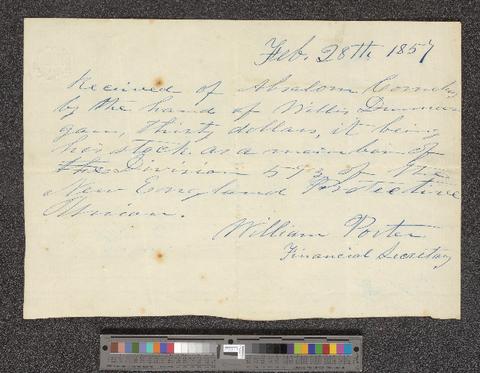 Feb. 28th 1857
Received of Absalom Cornelius
by the hand of Willis
gain, thirty dollars, it being
his stock as a mainber of
the Division 593 of the
New England Protective
Union.
William Porter
Financial Secretary